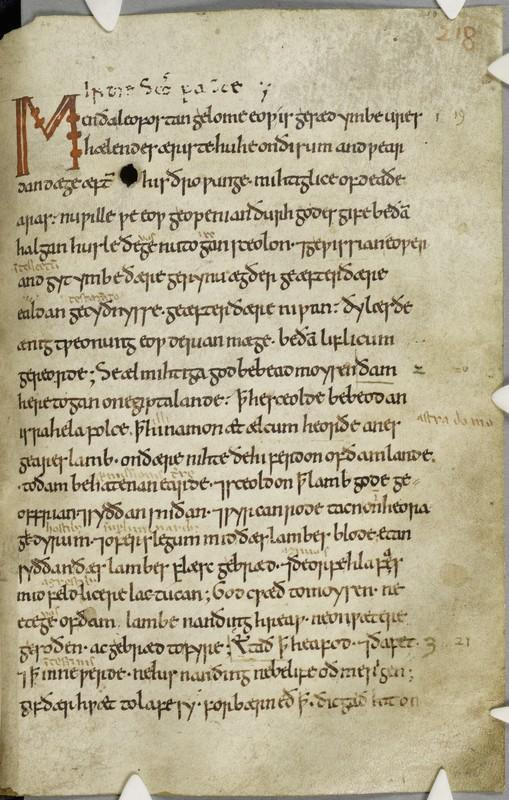 218
In die Sc̄o pasce
Men ða leofostan gelome eoƿ is gesæd ymbe ures
hælendes ærist hu he on ðisum andƿear
dan dæge æft̄ his ðroƿunge· mihtiglice of deaðe
aras: nu ƿille ƿe eoƿ geopenian ðurh godes gife be ðā
halgan husle ðe ge nu to gan sceolon· ⁊ geƿissian eoƿer
andgyt ymbe ðære gerynu ægðer ge æfter ðære
ealdan gecyðnysse· ge æfter ðære niƿan: ðy læs ðe
ænig tƿeonung eoƿ derian mæge· be ðā liflicum
gereorde; Se ælmihtiga god bebead moysen ðam
heretogan on egiptalande: ꝥ he sceolde bebeodan
israhela folce· ꝥ hi namon æt ælcum heorðe anes
geares lamb· on ðære nihte ðe hi ferdon of ðam lande·
to ðam behatenan earde· ⁊ sceoldon ꝥ lamb gode ge
offrian· ⁊ syððan snidan· ⁊ ƿyrcan rode tacn on heora
gedyrum· ⁊ oferslegum mid ðæs lambes blode· etan
syððan ðæs lambes flæsc gebræd· ⁊ ðeorf hlaf
mid feldlicere lactucan; God cƿæð to moysen· ne
ete ge of ðam lambe nan ðing hreaƿ· ne on ƿætere
gesoden· ac gebræd to fyre; Etað ꝥ heafod· ⁊ ða fet·
⁊ ꝥ inneƿerde· ne his nan ðing ne belife oð merigen;
gif ðær hƿæt to lafe sy· forbærneð ꝥ· ðicgað